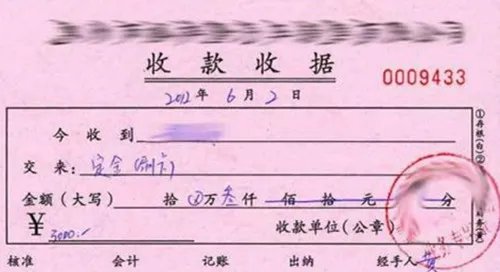 收款收据
0009433
2012年6月2日
今收到
交来：定金(刷卡)
金额（大写） 拾 万叁仟 佰 拾 元 分
¥ 3000.- 收款单位（公章）
核准 会计 记账 出纳 经手人
①存根(白)